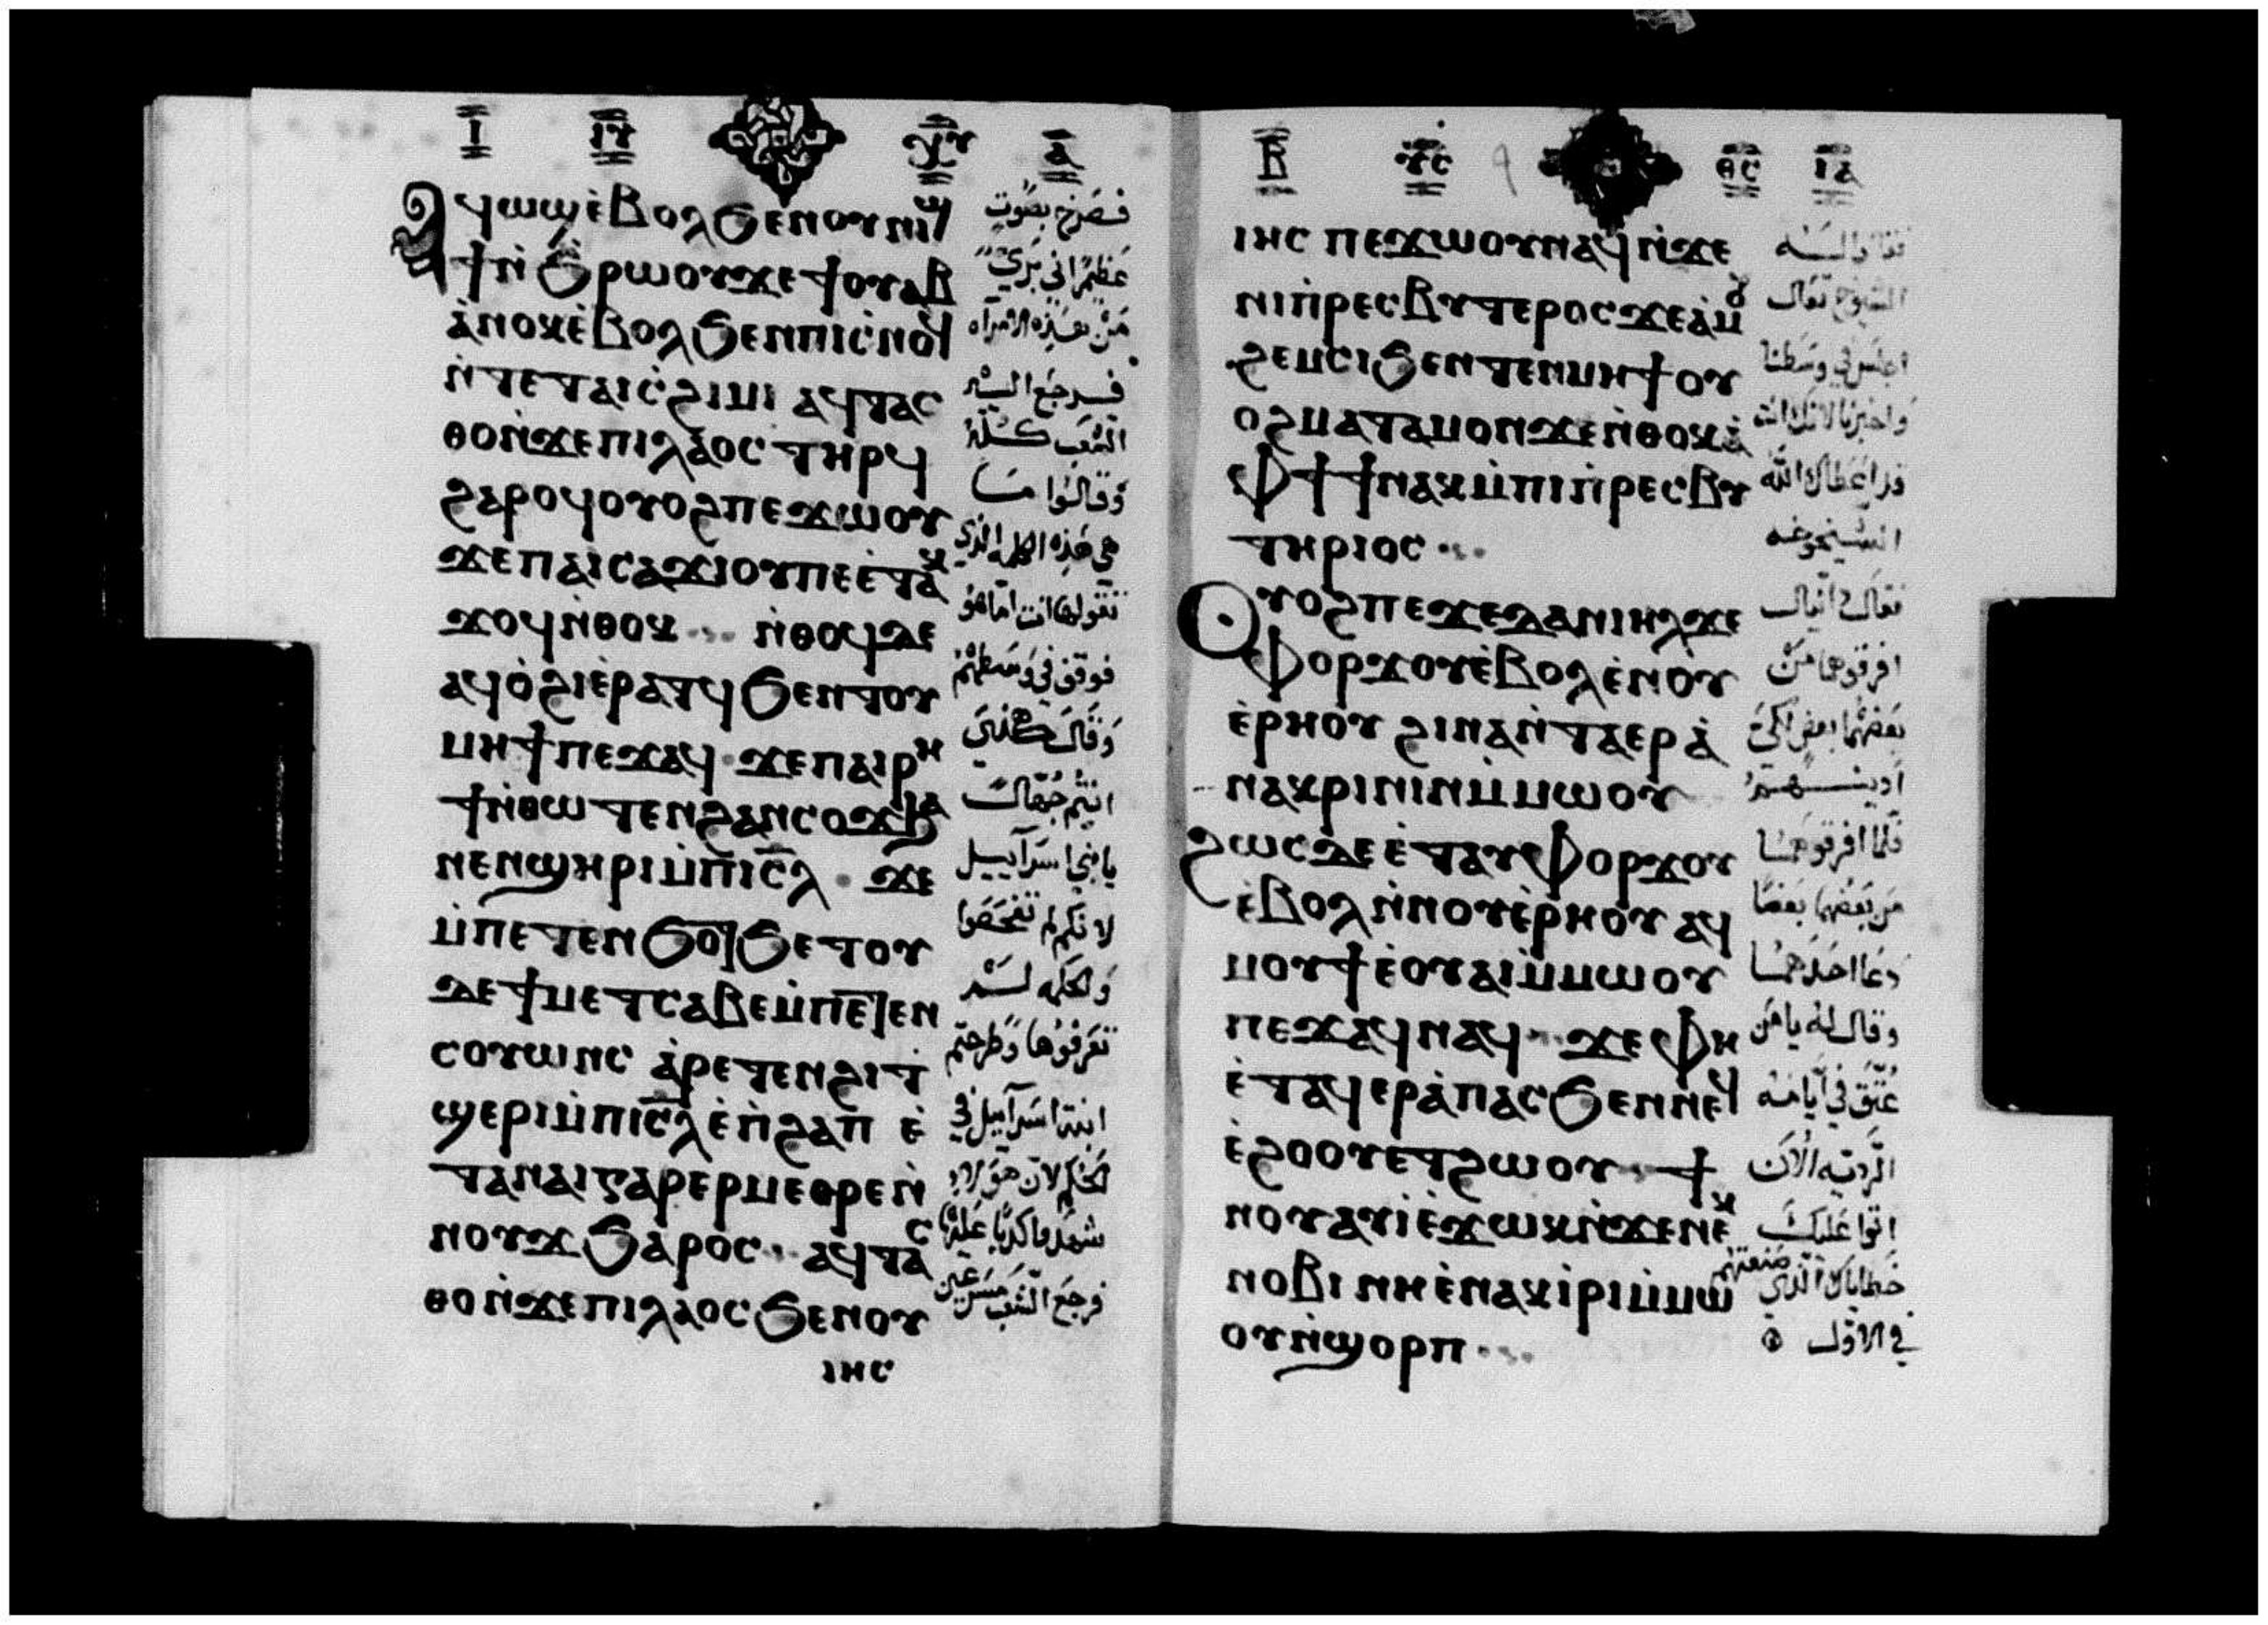 Ⲓ̄ ⲒⲨ̄ ⲬⲨ̄ Ⲁ̄
Ⲁϥⲱϣⲉ̀ⲃⲟⲗϧⲉⲛⲟⲩⲛⲓϣ
ϯⲛ̀ϧ̀ⲣⲱⲟⲩϫⲉϯⲟⲩⲁⲃ
ⲁ̀ⲛⲟⲕⲉ̀ⲃⲟⲗϧⲉⲛⲡⲓⲥ̀ⲛⲟϥ
ⲛ̀ⲧⲉⲧⲁⲓⲥ̀ϩⲓⲙⲓ ⲁϥⲧⲁⲥ
ⲑⲟⲛ̀ϫⲉⲡⲓⲗⲁⲟⲥ ⲧⲏⲣϥ
ϩⲁⲣⲟϥⲟⲩⲟϩⲡⲉϫⲱⲟⲩ
ϫⲉⲡⲁⲓⲥⲁϫⲓⲟⲩⲡⲉⲉ̀ⲧⲁⲕ
ϫⲟϥⲛ̀ⲑⲟⲕ ⲛ̀ⲑⲟϥⲇⲉ
ⲁϥⲟ̀ϩⲓⲉ̀ⲣⲁⲧϥϧⲉⲛⲧⲟⲩ
ⲙⲏϯⲡⲉϫⲁϥ ϫⲉⲡⲁⲓⲣⲏ
ϯⲛ̀ⲑⲱⲧⲉⲛϩⲁⲛⲥⲟϫ
ⲛⲉⲛϣⲏⲣⲓⲙ̀ⲡⲓⲥ̄ⲗ ϫⲉ
ⲙ̀ⲡⲉⲧⲉⲛϧⲟⲧϧⲉⲧⲟⲩ
ⲇⲉϯⲙⲉⲧⲥⲁⲃⲉⲙ̀ⲡⲉⲧⲉⲛ
ⲥⲟⲩⲱⲛⲥ ⲁ̀ⲣⲉⲧⲉⲛϩⲓⲧ
ϣⲉⲣⲓⲙ̀ⲡⲓⲥ̄ⲗⲉ̀ⲡ̀ϩⲁⲡ ⲉ̀
ⲧⲁⲛⲁⲓⲅⲁⲣⲉⲣⲙⲉⲑⲣⲉⲛ̀
ⲛⲟⲩϫϧⲁⲣⲟⲥ ⲁϥⲧⲁⲥ
ⲑⲟⲛ̀ϫⲉⲡⲓⲗⲁⲟⲥϧⲉⲛⲟⲩ
ⲓⲏⲥ
فصرخ بصوت
عظيم اني بري
من هذه الامرآه
فرجع اليه
الشعب كله
وقالوا ما
هي هذه الكلمه الذي
تقولها انت اما هو
فوقف في وسطهم
وقال هكذي
انتم جهال
يا بني اسرآييل
لانكم لم تفحصوا
والحكمه لم
تعرفوها وطرحتم
ابنة اسرآييل في
الحكم لان هؤلاء
شهدوا كدبًا عليها
فرجع الشعب مسرعين
Ⲃ̄ ⲨⲤ̄ ⲐⲤ̄ ⲒⲀ̄
ⲓⲏⲥ ⲡⲉϫⲱⲟⲩⲛⲁϥⲛ̀ϫⲉ
ⲛⲓⲡ̀ⲣⲉⲥⲃⲩⲧⲉⲣⲟⲥϫⲉⲁ̀ⲙⲟⲩ
ϩⲉⲙⲥⲓϧⲉⲛⲧⲉⲛⲙⲏϯⲟⲩ
ⲟϩⲙⲁⲧⲁⲙⲟⲛϫⲉⲛ̀ⲑⲟⲕⲁ̀
ⲫϯϯⲛⲁⲕⲙ̀ⲡⲓⲡ̀ⲣⲉⲥⲃⲩ
ⲧⲏⲣⲓⲟⲥ
Ⲟⲩⲟϩⲡⲉϫⲉⲇⲁⲛⲓⲏⲗϫⲉ
ⲫⲟⲣϫⲟⲩⲉ̀ⲃⲟⲗⲉ̀ⲛⲟⲩ
ⲉ̀ⲣⲏⲟⲩ ϩⲓⲛⲁⲛ̀ⲧⲁⲉⲣⲁ̀
ⲛⲁⲕⲣⲓⲛⲓⲛⲙ̀ⲙⲱⲟⲩ
ϩⲱⲥⲇⲉⲉ̀ⲧⲁⲩⲫⲟⲣϫⲟⲩ
ⲉ̀ⲃⲟⲗⲛ̀ⲛⲟⲩⲉ̀ⲣⲏⲟⲩ ⲁϥ
ⲙⲟⲩϯⲉ̀ⲟⲩⲁⲓⲙ̀ⲙⲱⲟⲩ
ⲡⲉϫⲁϥⲛⲁϥ ϫⲉⲫⲏ
ⲉ̀ⲧⲁϥⲉⲣⲁ̀ⲡⲁⲥϧⲉⲛⲛⲉϥ
ⲉ̀ϩⲟⲟⲩⲉⲧϩⲱⲟⲩ ϯ
ⲛⲟⲩⲁⲩⲓ̀ⲉ̀ϫⲱⲕⲛ̀ϫⲉⲛⲉⲕ
ⲛⲟⲃⲓ ⲛⲏⲉ̀ⲛⲁⲕⲓ̀ⲣⲓⲙ̀ⲙⲱ
ⲟⲩⲛ̀ϣⲟⲣⲡ
فقالوا له
الشيوخ تعال
اجلس في وسطنا
واخبرنا لانك انت
قد اعطاك الله
الشيخوخه
فقال دانيال
افرقوهما من
بعضهما بعض لكي
ادينهم
فلما افرقوهما
من بعضهما بعضا
دعا احدهما
وقال له يا من
عتق في ايامه
الرديه الان
اتوا عليك
خطاياك الذي صنعتهم
في الاول